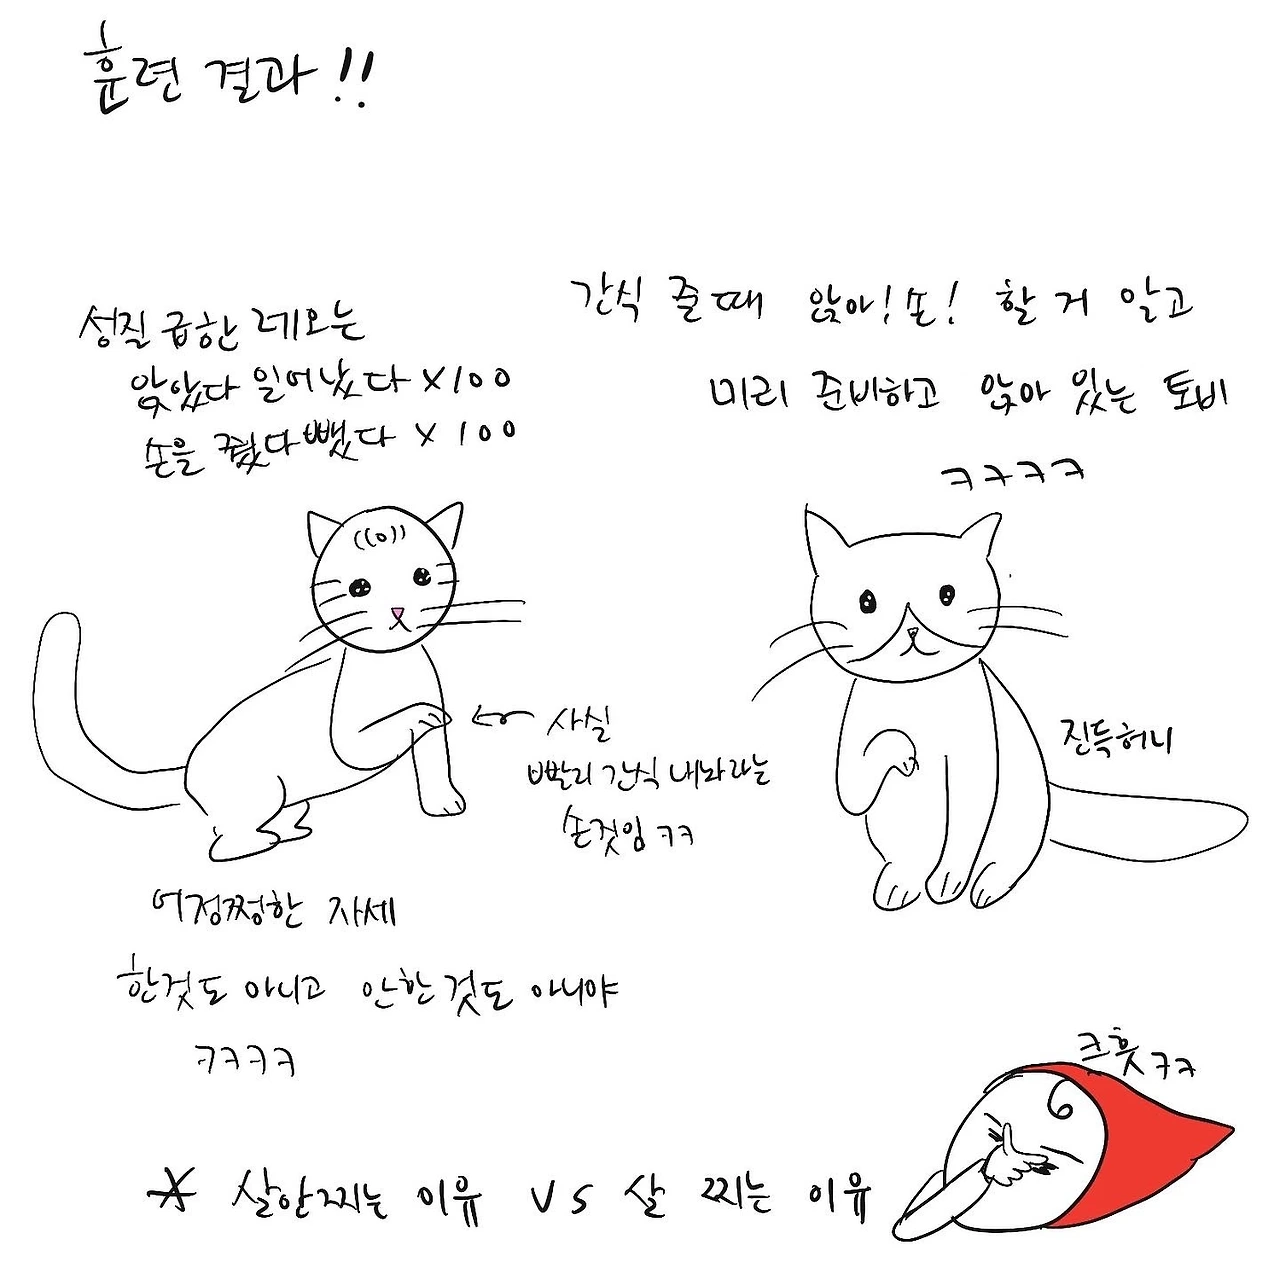 훈련 결과!!
성질 급한 레오는
앉았다 일어났다 X100
손을 줬다 뺐다 X 100
간식 줄때 앉아! 손! 할 거 알고
미리 준비하고 앉아 있는 토비
ㅋㅋㅋㅋ
← 사실
빨리 간식 내놔라는
손짓임 ㅋㅋ
진득허니
어정쩡한 자세
한것도 아니고 안한것도 아니야
ㅋㅋㅋㅋ
크흣ㅋㅋ
* 살안찌는 이유 VS 살 찌는 이유